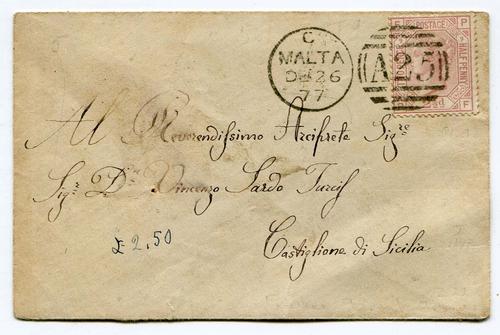 C
MALTA
DE 26
77
A25
POSTAGE
HALFPENNY
P
F
F
P
Al Reverendissimo Arciprete Sigre
Sigr Dn Vincenzo Sardo Turcis
£ 2.50
Castiglione di Sicilia